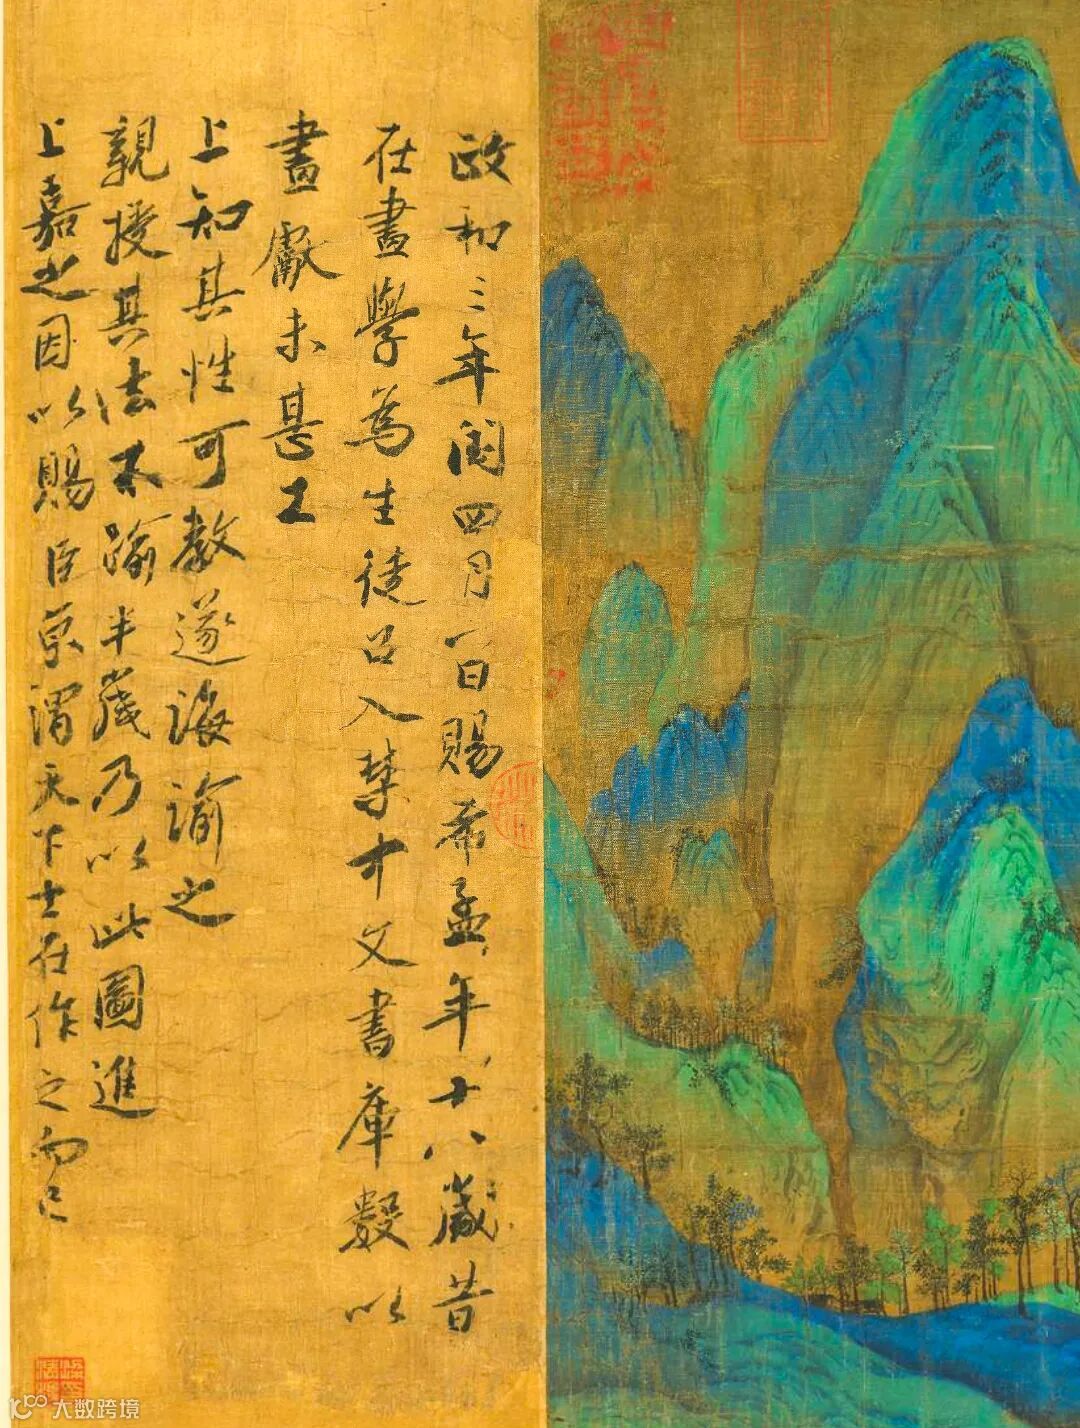 政和三年閏四月一日賜希孟年十八歲昔
在畫學為生徒召入禁中文書庫數以
畫獻未甚工
上知其性可教遂誨諭之
親授其法不踰半歲乃以此圖進
上嘉之因以賜臣京謂天下士在作之而已
大数跨境